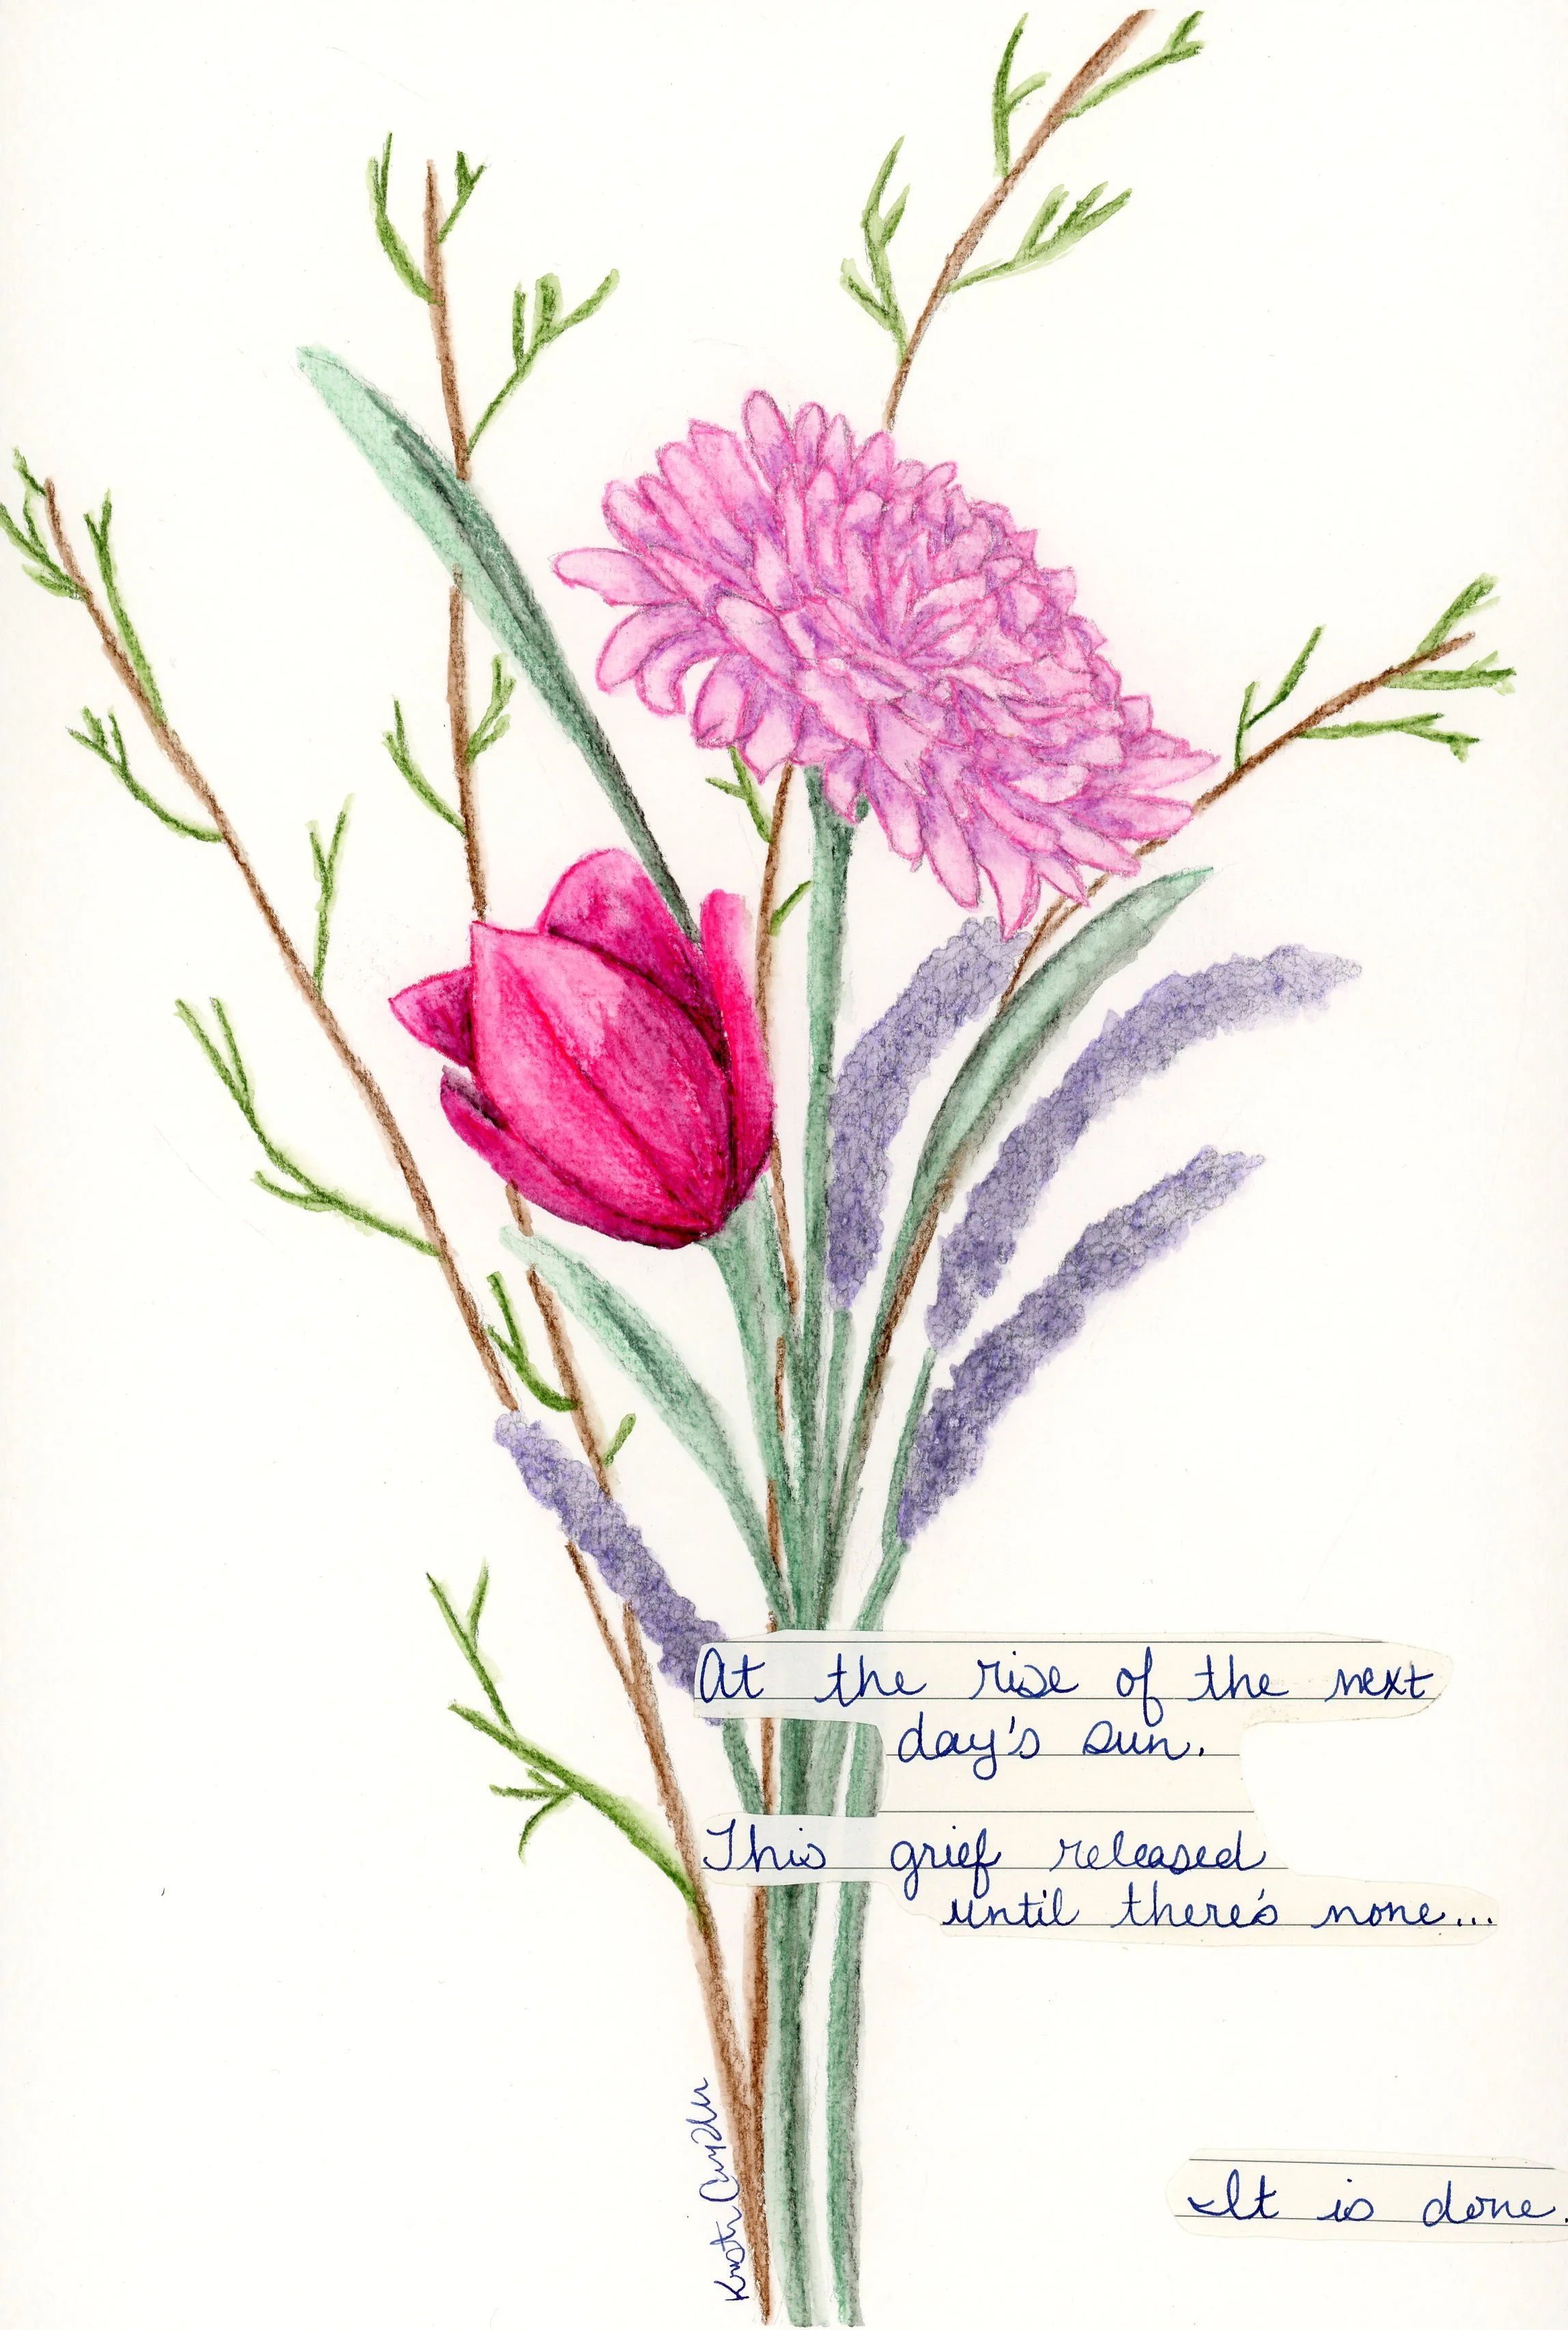 At the rise of the next
day's sun.
This grief released
until there's none...
It is done.